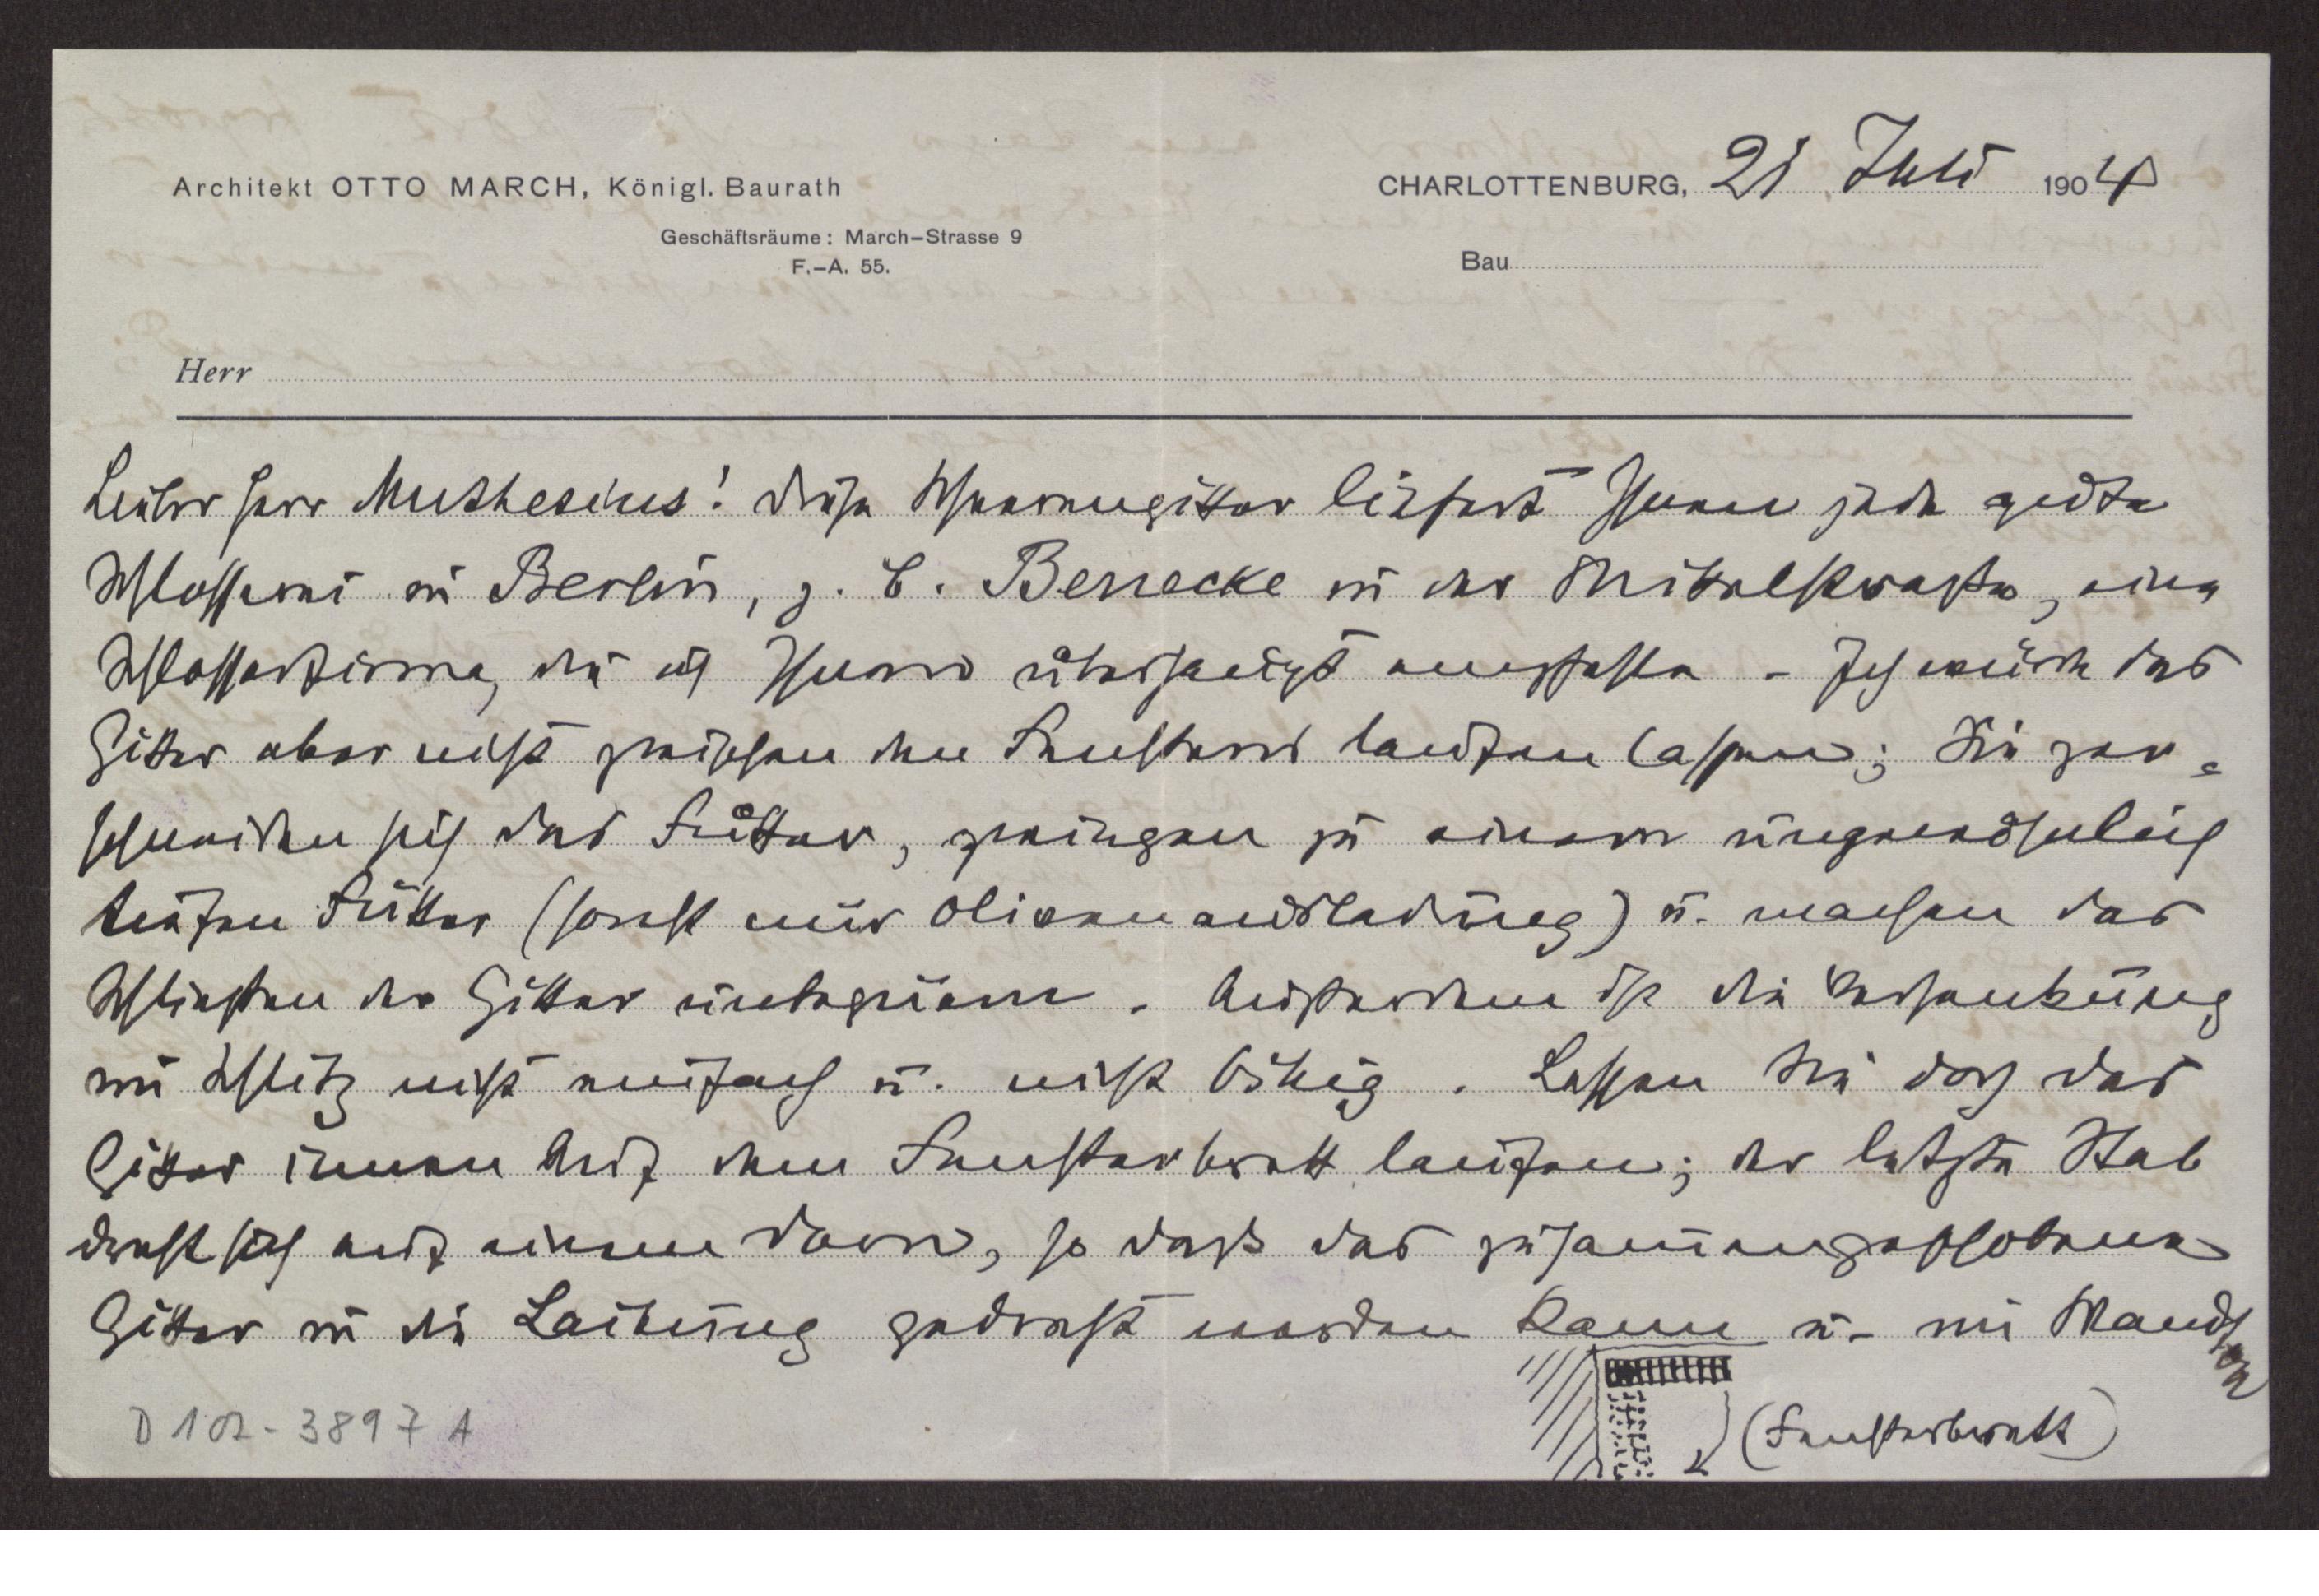 Architekt OTTO MARCH, Königl. Baurath
Geschäftsräume: March-Strasse 9
F.-A. 55.
CHARLOTTENBURG, 21 Juli 1904
Bau
Herr
Lieber Herr Muthesius! Diese Scheerengitter liefert Ihnen jede gute
Schlosserei in Berlin, z. B. Benecke in der Mittelstrasse, eine
Schlosserfirma, die ich Ihnen überhaupt empfehle - Ich würde das
Gitter aber nicht zwischen den Fenstern laufen lassen; Sie zer-
schneiden sich das Futter, zwingen zu einem ungewöhnlich
tiefen Futter (sonst nur Olivenausladung) u. machen das
Schließen der Gitter unbequem. Außerdem ist die Versenkung
im Schlitz nicht einfach u. nicht billig. Lassen Sie doch das
Gitter innen auf dem Fensterbrett laufen; der letzte Stab
dreht sich auf einem Dorn, so daß das zusammengeschobene
Gitter in die Laibung gedreht werden kann u. im
(Fensterbrett)
D 102-3897 A